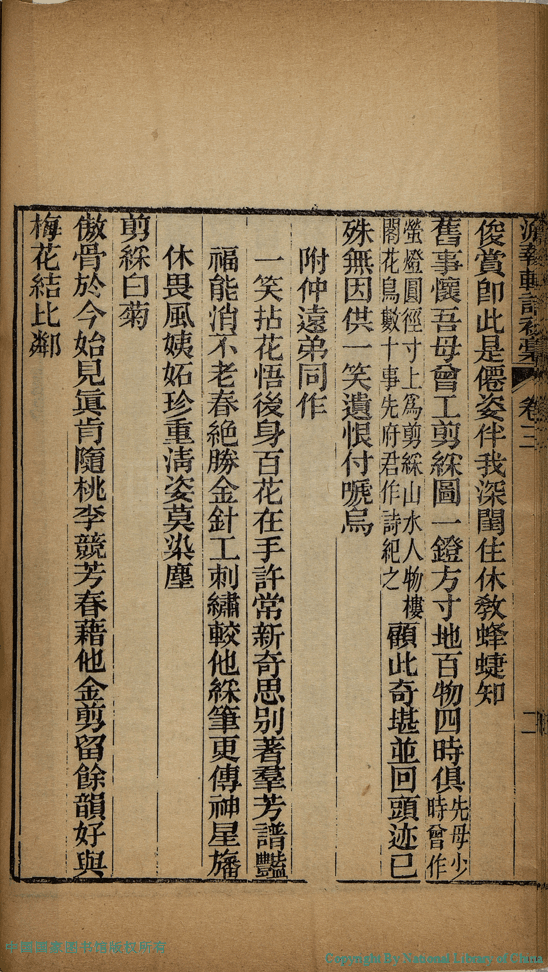 卷三
二
俊賞卽此是僊姿伴我深閨住休敎蜂蜨知
舊事懷吾母曾工剪綵圖一鐙方寸地百物四時俱先母少時曾作
螢燈圓徑寸上爲剪綵山水人物樓閣花鳥數十事先府君作詩紀之顧此奇堪並回頭迹已
殊無因供一笑遺恨付嗁烏
附仲遠弟同作
一笑拈花悟後身百花在手許常新奇思別著羣芳譜豔
福能消不老春絶勝金針工刺繡較他綵筆更傳神星旛
休畏風姨妬珍重淸姿莫染塵
剪綵白菊
傲骨於今始見眞肯隨桃李競芳春藉他金剪留餘韻好與
梅花結比鄰
中國國家图书馆版权所有
Copyright By National Library of China